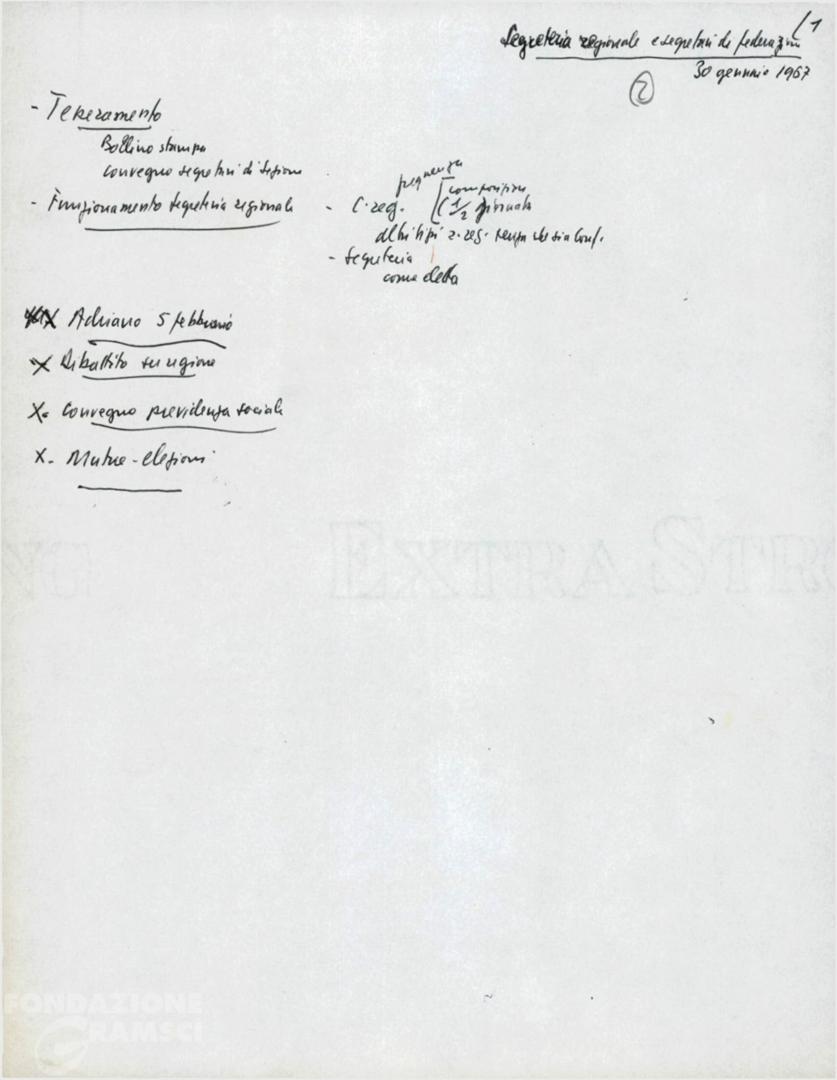 (1
Segreteria regionale e segretari di federazioni
30 gennaio 1967
2
- Tesseramento
Bollino stampa
Convegno segretari di sezione
- Funzionamento segreteria regionale
frequenza
- C. reg. [composizione
(1/2 giornata
altri tipi r. reg. senza che sia Conf.
- Segreteria
come detta
X Adriano 5 febbraio
X Dibattito su regione
X. Convegno previdenza sociale
X. Mutue-elezioni
EXTRA STR
NG
FONDAZIONE
GRAMSCI